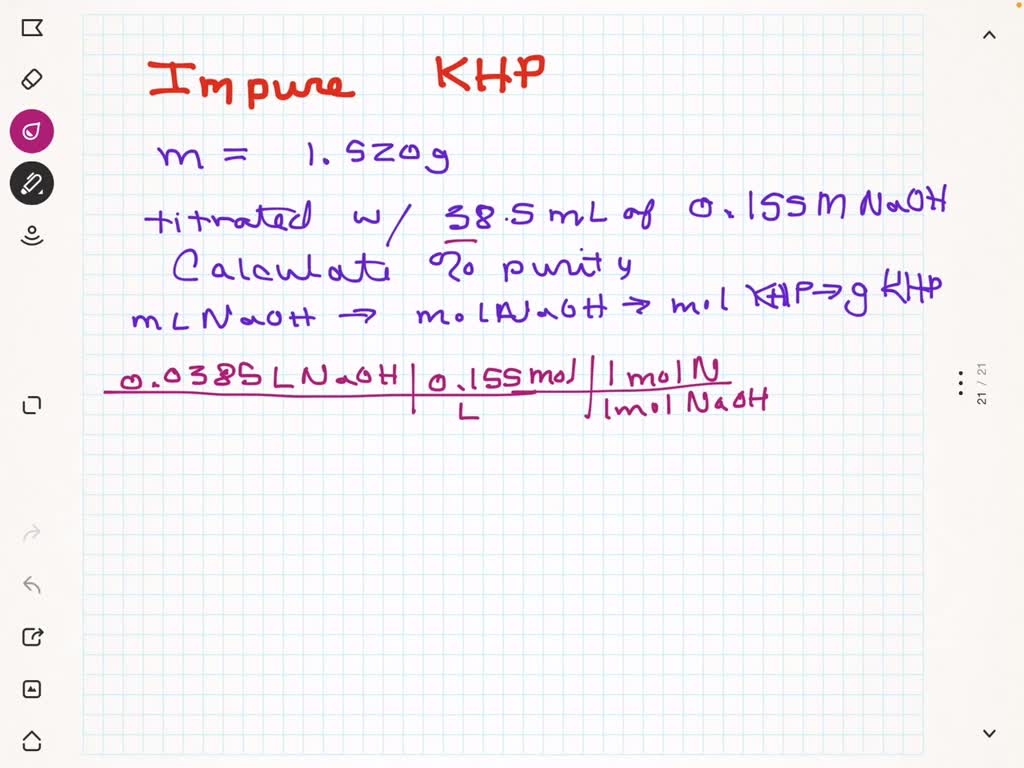 Impure KHP
m = 1.520g
titrated w/ 38.5 mL of 0.155M NaOH
Calculate % purity
mL NaOH → mol NaOH → mol KHP → g KHP
0.0385 L NaOH | 0.155 mol | 1 mol N
L | 1 mol NaOH
21 / 21